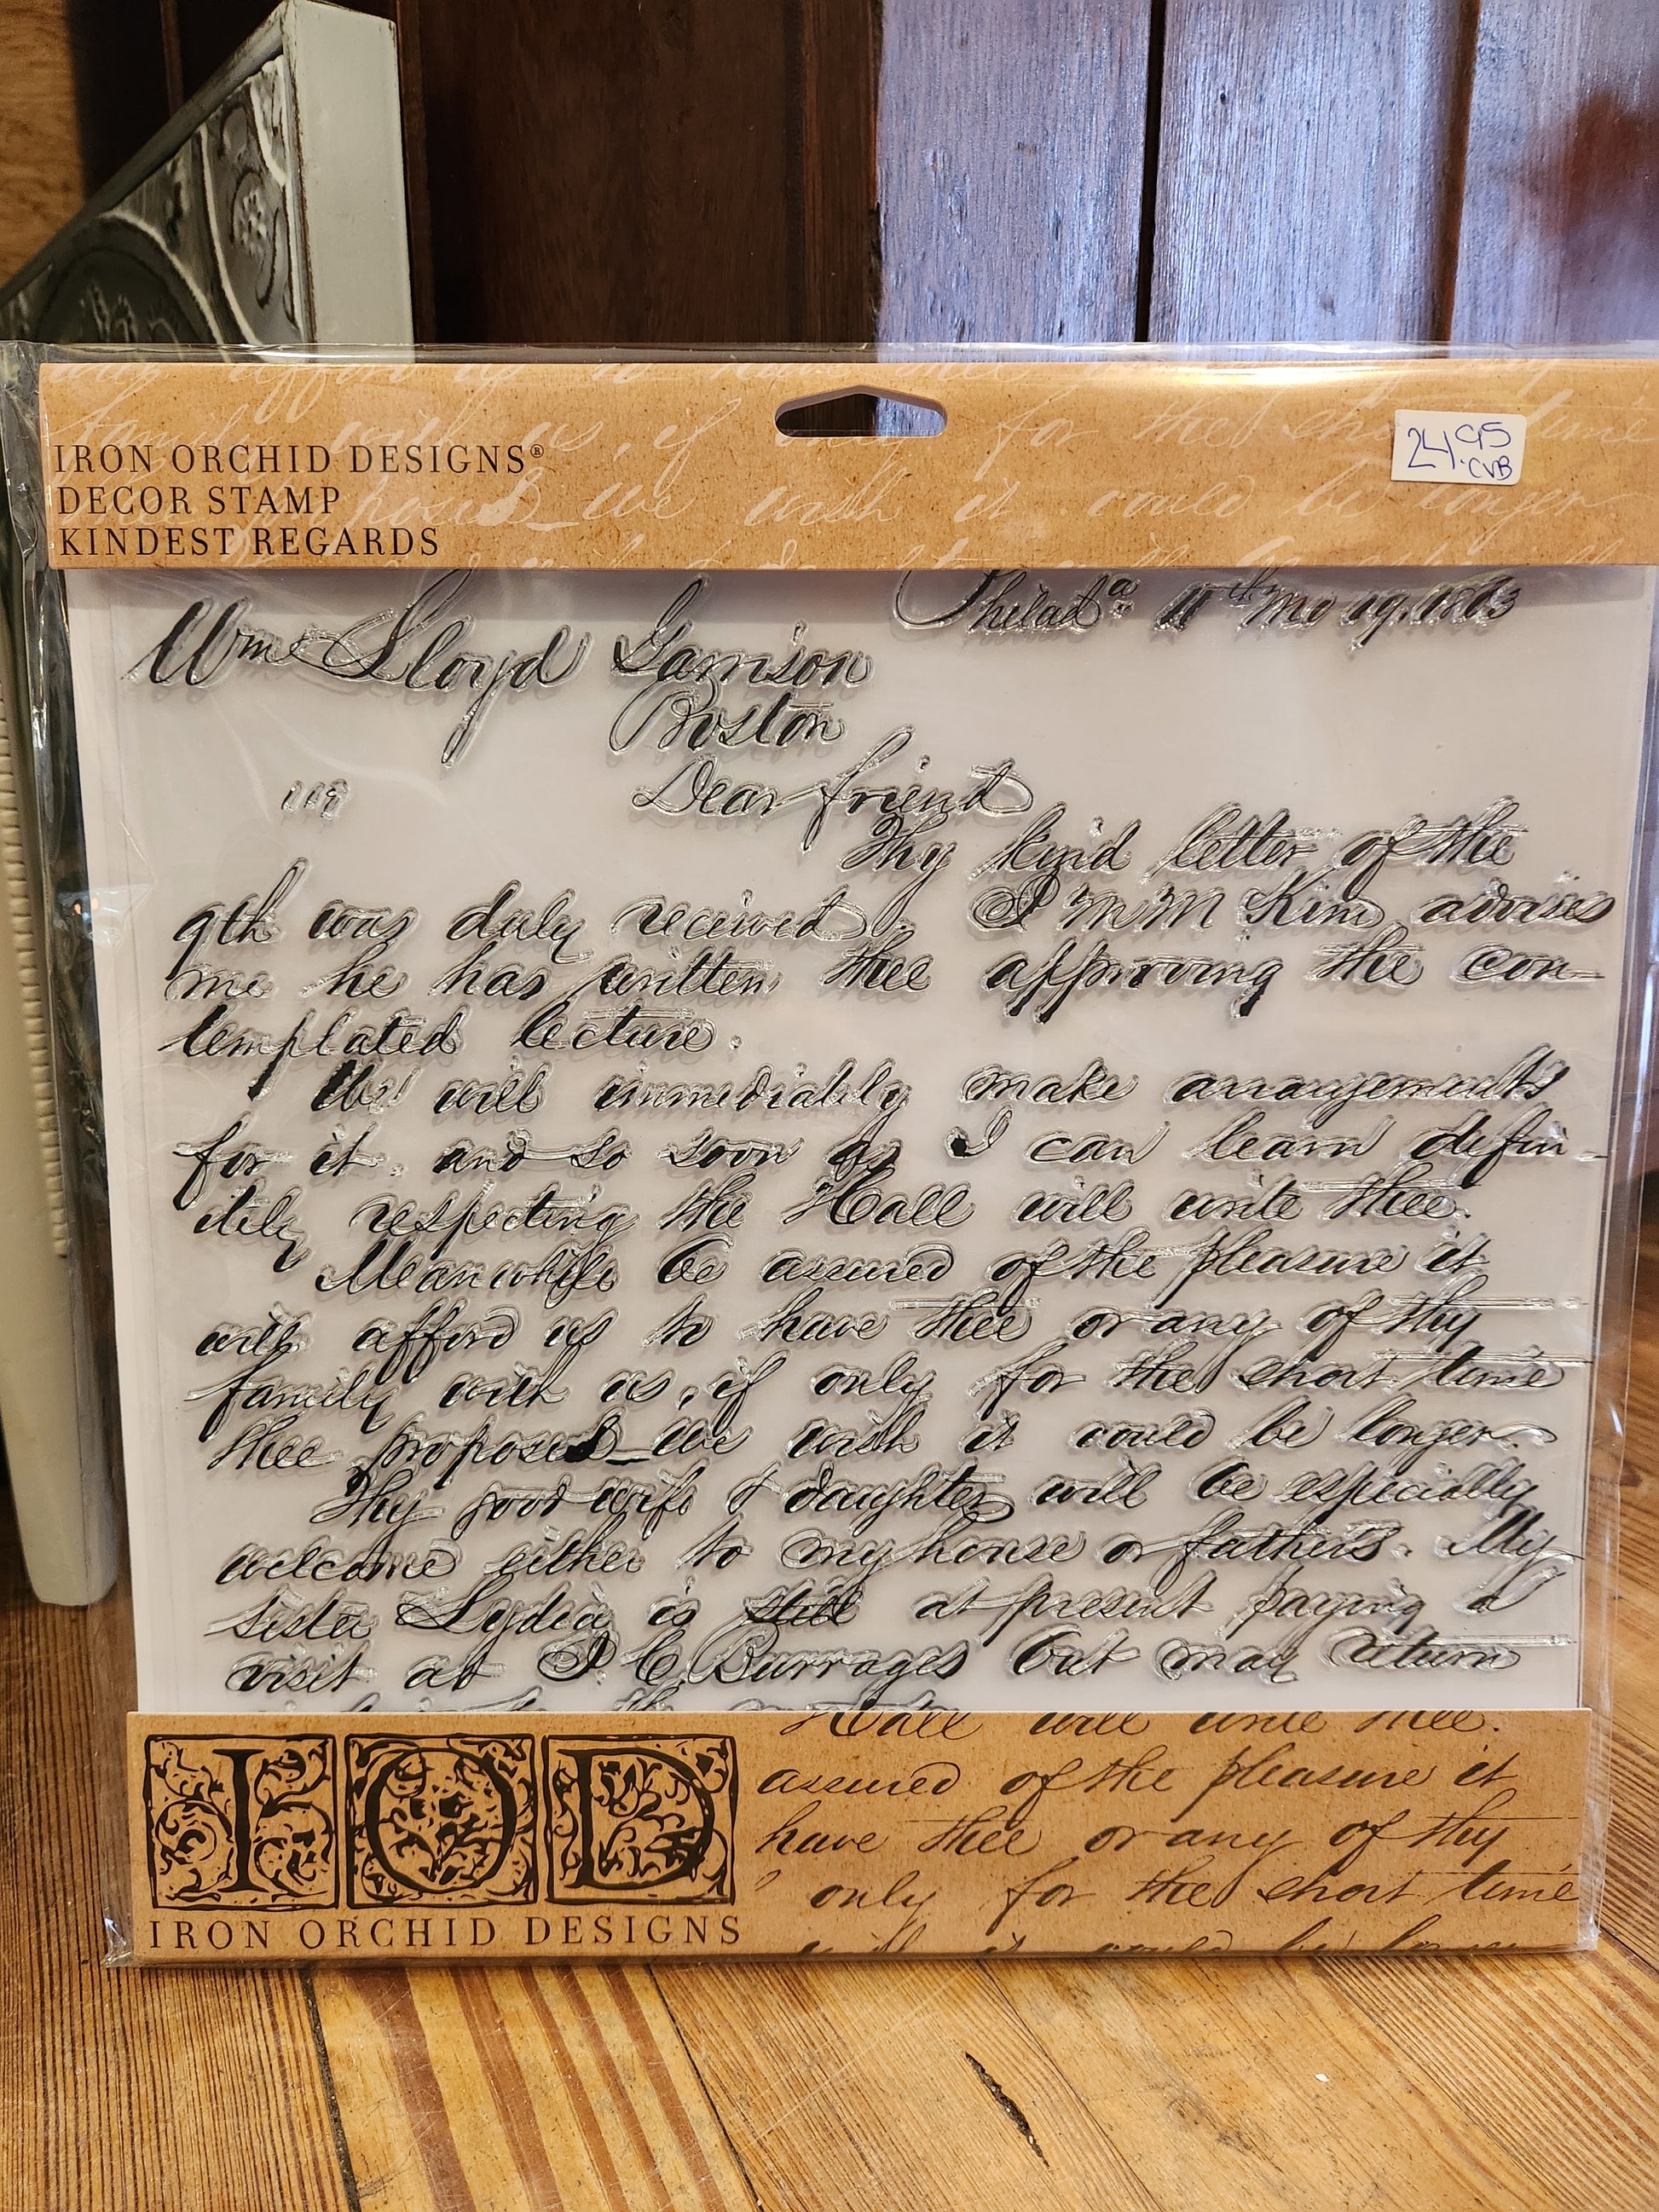 IRON ORCHID DESIGNS®
DECOR STAMP
KINDEST REGARDS
24.95
CVB
for the short time
posed_we wish it could be longer
Philada 11th Mo 19. 1863
Wm Lloyd Garrison
Boston
119
Dear friend
Thy kind letter of the
9th was duly received. J M McKim advises
me he has written thee approving the con-
templated lecture.
We will immediately make arrangements
for it. and so soon as I can learn defin-
itely respecting the Hall will write thee.
Meanwhile be assured of the pleasure it
will afford us to have thee or any of thy
family with us, if only for the short time
thee proposed_we wish it could be longer.
Thy good wife & daughter will be especially
welcome either to my house or fathers. My
sister Lydia is still at present paying a
visit at J C Burrages but may return
Hall will write thee.
assured of the pleasure it
have thee or any of thy
only for the short time
it could be longer
IOD
IRON ORCHID DESIGNS